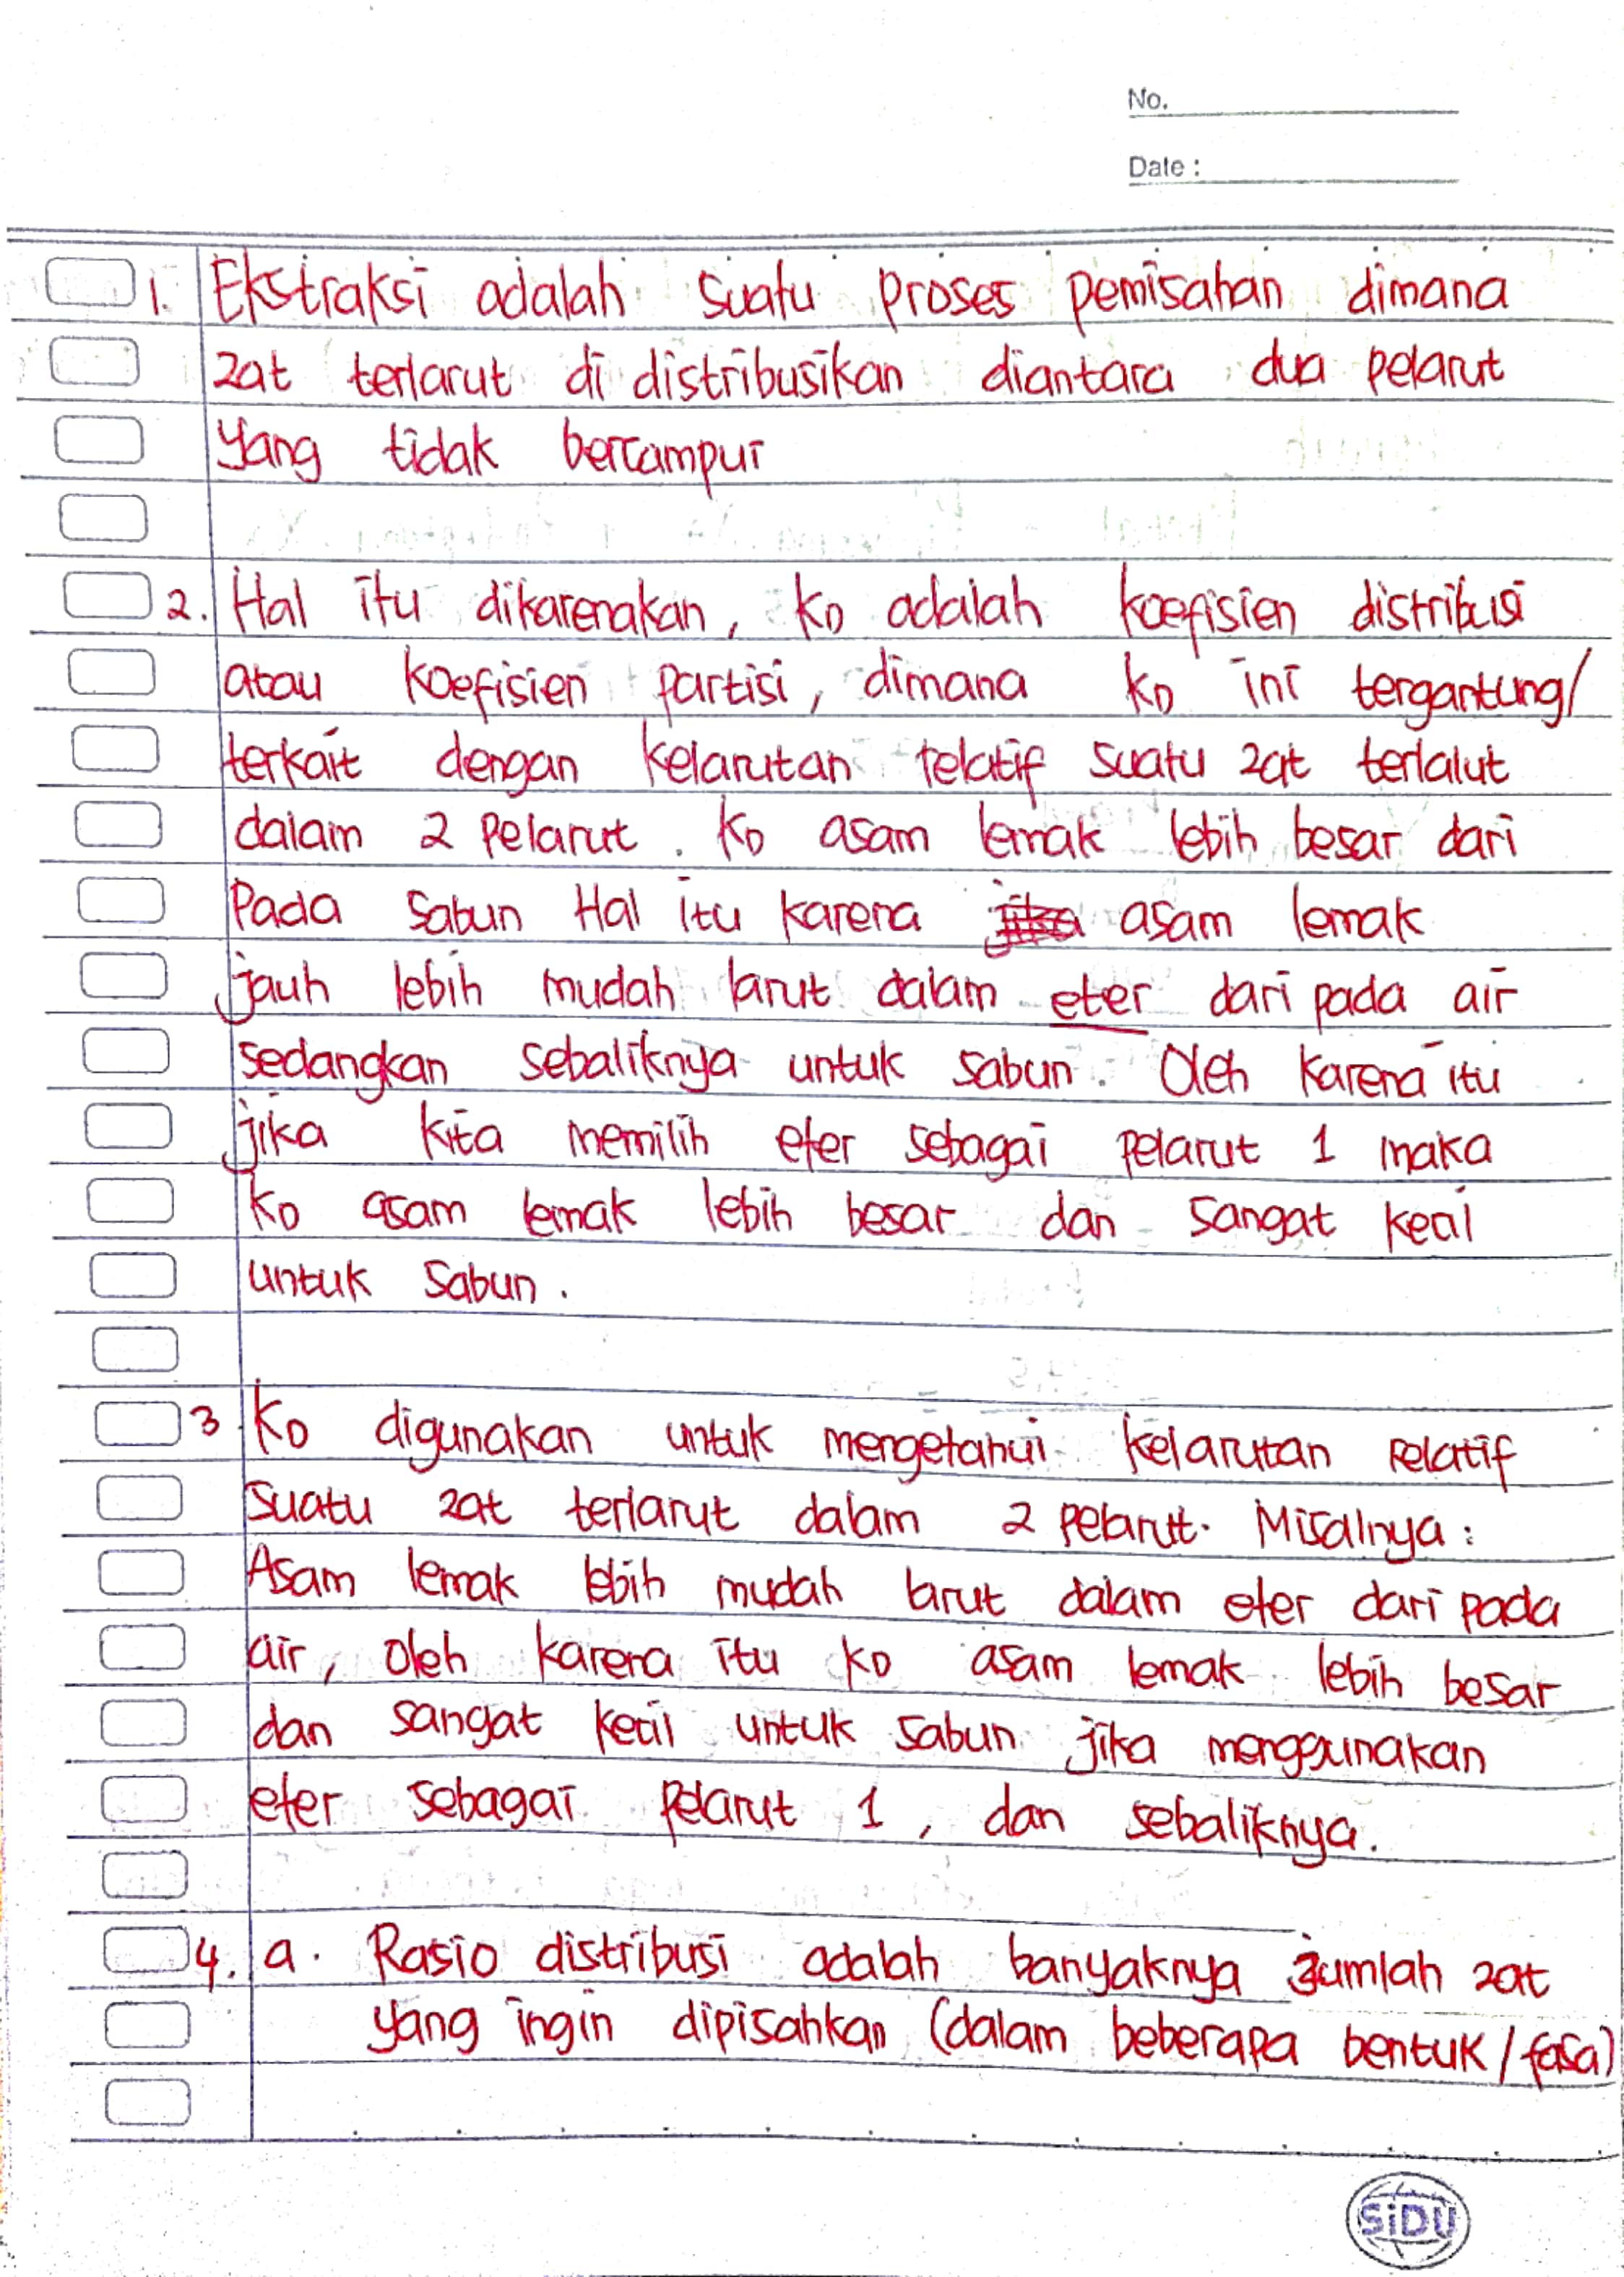 No.
Date :
1. Ekstraksi adalah suatu proses pemisahan dimana
zat terlarut di distribusikan diantara dua pelarut
yang tidak bercampur
2. Hal itu dikarenakan, KD adalah koefisien distribusi
atau koefisien partisi, dimana KD ini tergantung/
terkait dengan kelarutan relatif suatu zat terlalut
dalam 2 pelarut. KD asam lemak lebih besar dari
Pada sabun Hal itu karena asam lemak
jauh lebih mudah larut dalam eter dari pada air
sedangkan sebaliknya untuk sabun. Oleh karena itu
jika kita memilih eter sebagai pelarut 1 maka
KD asam lemak lebih besar dan sangat kecil
untuk sabun.
3. KD digunakan untuk mengetahui kelarutan relatif
suatu zat terlarut dalam 2 pelarut. Misalnya:
Asam lemak lebih mudah larut dalam eter dari pada
air, oleh karena itu KD asam lemak lebih besar
dan sangat kecil untuk sabun jika menggunakan
eter sebagai pelarut 1, dan sebaliknya.
4. a. Rasio distribusi adalah banyaknya jumlah zat
yang ingin dipisahkan (dalam beberapa bentuk/fasa)
SiDU